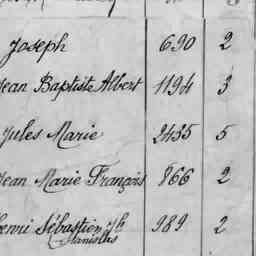 Joseph 690 2
Jean Baptiste Albert 1194 3
Jules Marie 2435 5
Jean Marie François 866 2
Henri Sébastien Jh 989 2
Stanislas